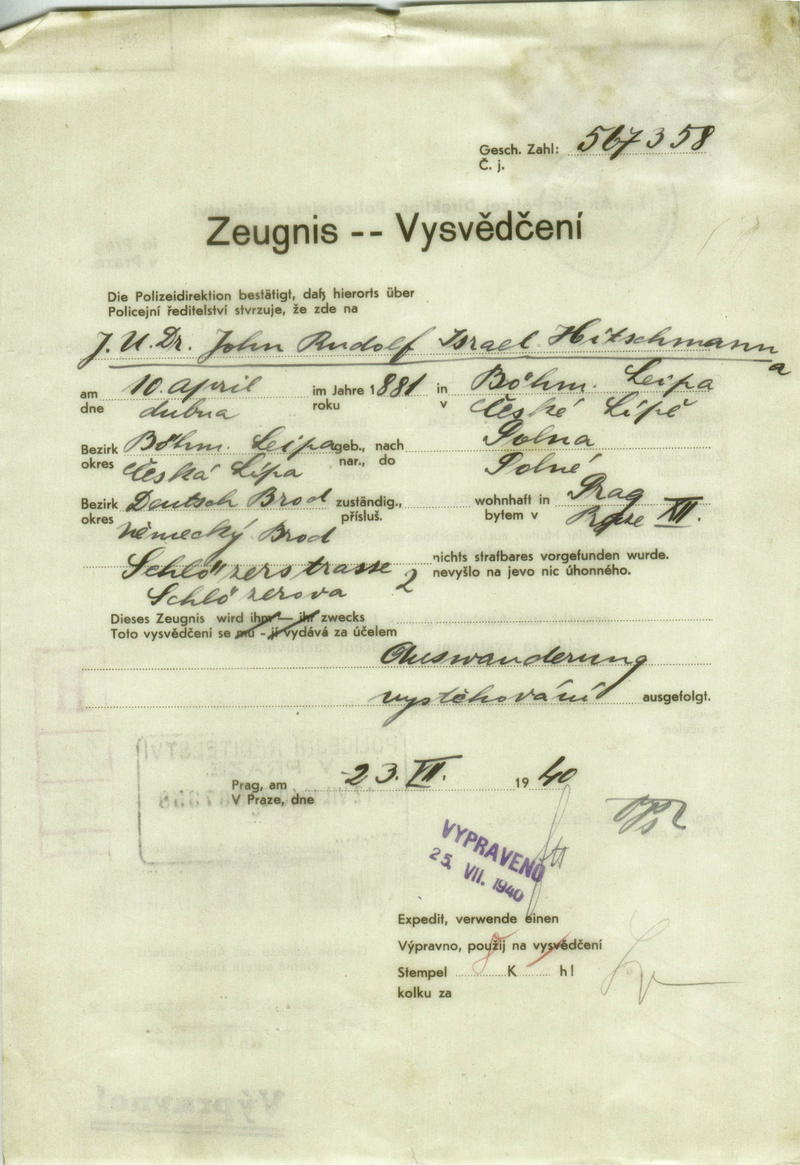 Gesch. Zahl: 567358
Č. j.
Zeugnis -- Vysvědčení
Die Polizeidirektion bestätigt, daß hierorts über
Policejní ředitelství stvrzuje, že zde na
J. U. Dr. John Rudolf Israel Hitschmann
a
am 10. april im Jahre 1881 in Böhm. Leipa
dne dubna roku v České Lípě
Bezirk Böhm. Leipa geb., nach Polna
okres Česká Lípa nar., do Polné
Bezirk Deutsch Brod zuständig., wohnhaft in Prag
okres Německý Brod přísluš. bytem v XII.
Schlözerstrasse 2 nichts strafbares vorgefunden wurde.
Schlözerova nevyšlo na jevo nic úhonného.
Dieses Zeugnis wird ihm — ihr zwecks
Toto vysvědčení se mu - jí vydává za účelem
Auswanderung
vystěhování ausgefolgt.
Prag, am 23. VII. 1940
V Praze, dne
VYPRAVENO
25. VII. 1940
Expedit, verwende einen
Výpravno, použij na vysvědčení
Stempel K h!
kolku za